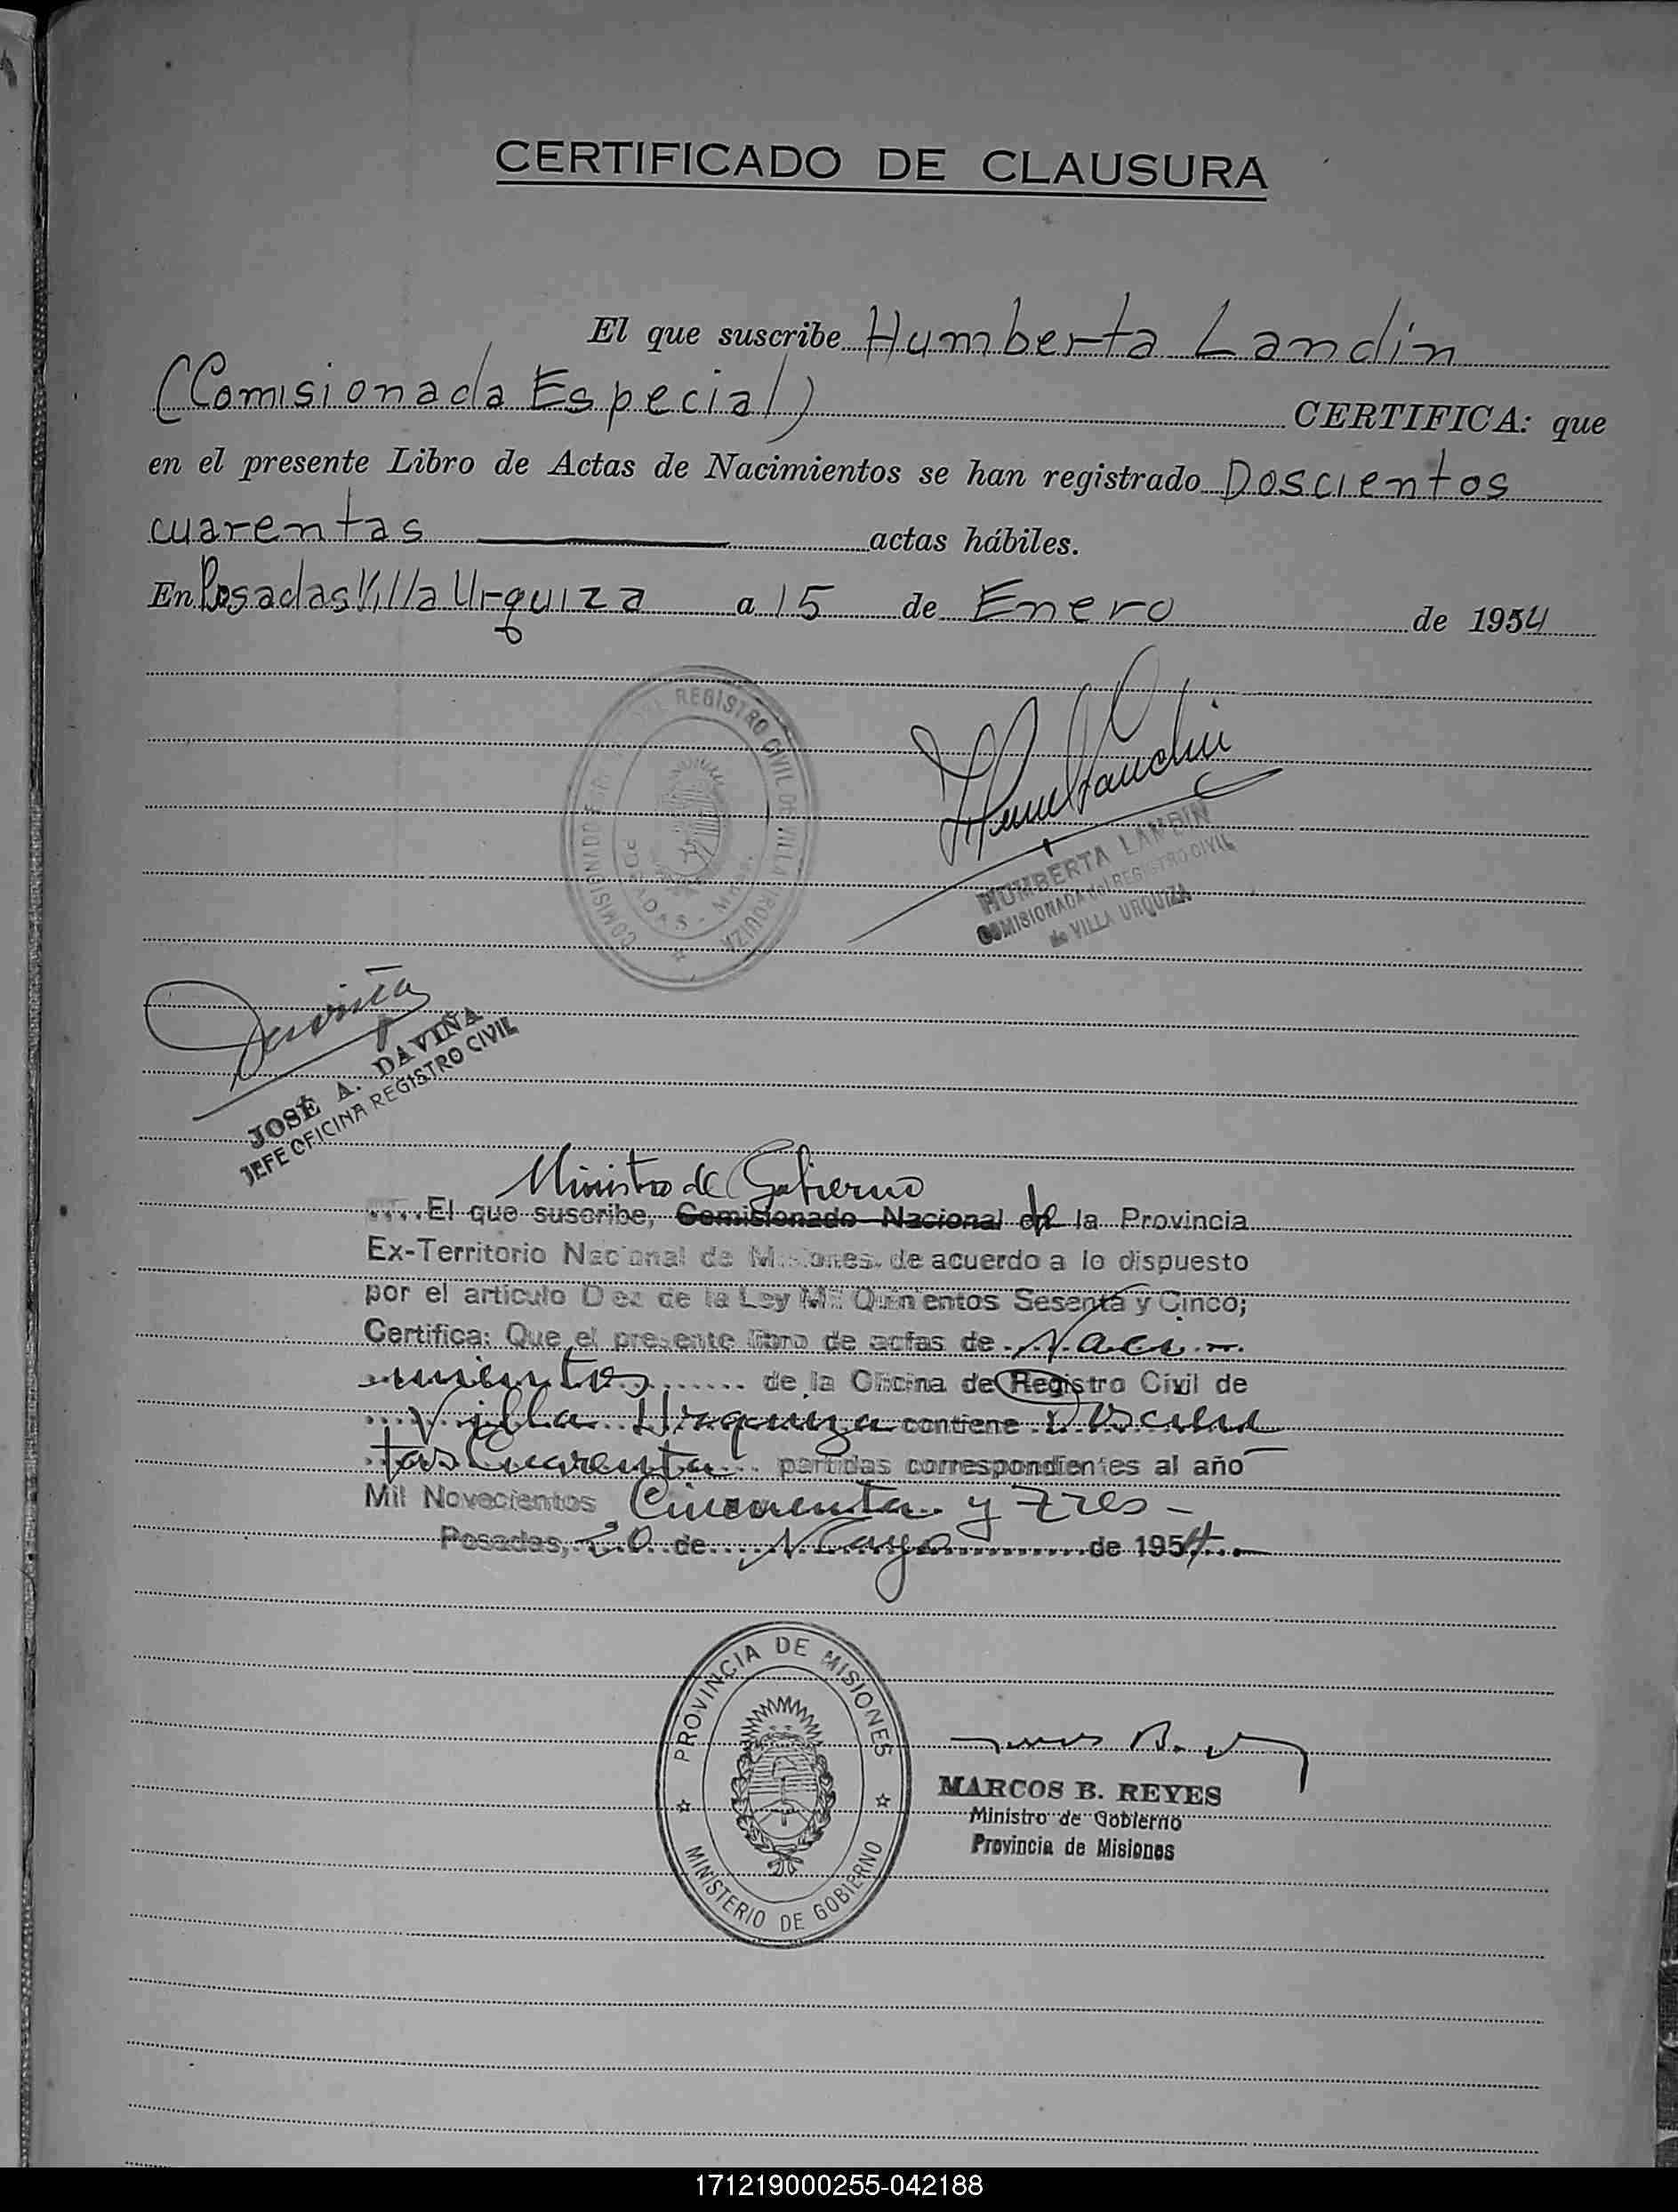 CERTIFICADO DE CLAUSURA
El que suscribe Humberta Landin
(Comisionada Especial) CERTIFICA: que
en el presente Libro de Actas de Nacimientos se han registrado Doscientos
cuarentas actas hábiles.
En Posadas Villa Urquiza a 15 de Enero de 1954
COMISIONADO REGISTRO CIVIL DE VILLA URQUIZA
HUMBERTA LANDIN
COMISIONADA del REGISTRO CIVIL
de VILLA URQUIZA
Daviña
JOSÉ A. DAVIÑA
JEFE OFICINA REGISTRO CIVIL
Ministro de Gobierno
El que suscribe, Comisionado Nacional de la Provincia
Ex-Territorio Nacional de Misiones, de acuerdo a lo dispuesto
por el articulo Diez de la Ley Mil Quinientos Sesenta y Cinco;
Certifica: Que el presente libro de actas de Naci-
mientos de la Oficina de Registro Civil de
Villa Urquiza contiene Doscien
tas Cuarenta partidas correspondientes al año
Mil Novecientos Cincuenta y tres-
Posadas, 20 de Mayo de 1954.-
PROVINCIA DE MISIONES
MINISTERIO DE GOBIERNO
MARCOS B. REYES
Ministro de Gobierno
Provincia de Misiones
171219000255-042188